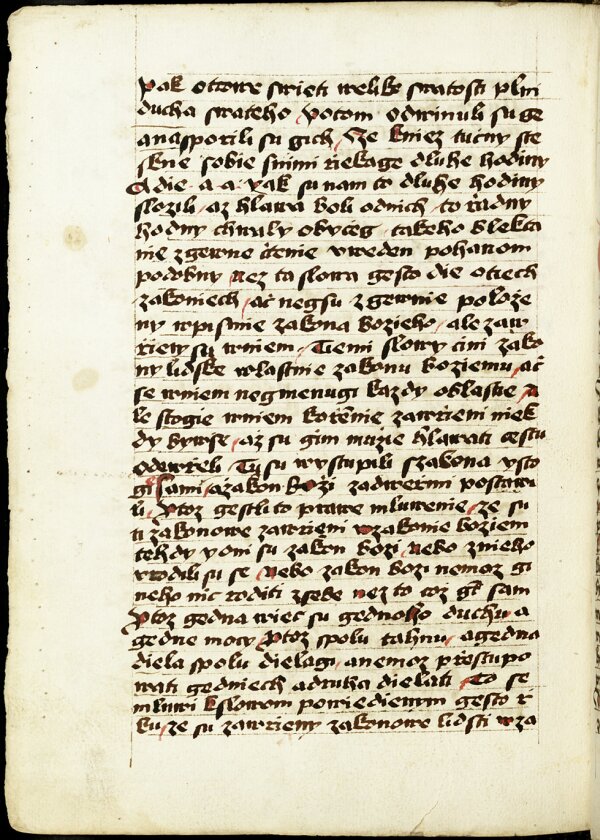 pak ottowe swieti welike swatosti plni
ducha swateho potom odwinuli su ge
anasporili su gich Ze kniez tucny ste
skne sobie snimi riekage dluhe hodiny
die a a yak su nam to dluhe hodiny
slozili az hlawa boli odnich to zadny
hodny chwaly obyceg takeho blekta
nie zgewne ctenie vweden pohanom
podobny nez ta slowa gesto die otiech
zakoniech ac negsu zgewnie poloze
ny wpismie zakona bozieho ale zaw
rieny su wniem Tiemi slowy cini zako
ny lidske wlastnie zakonu boziemu ac
se wniem negmenugi kazdy oblastie A
le stogie wniem korenie zawrieni niek
dy bywse az su gim muzie hlawati cestu
odewreli Tu su wystupili szakona ysto
gi sami azakon bozi zadwermi postawi
li Ptoz gestli to prawe mluwenie ze su
ti zakonowe zawrieni wzakonie boziem
tehdy yoni su zakon bozi nebo znieho
vrodili su se nebo zakon bozi nemoz gi
neho nic roditi zsebe nez to coz gest sam
Ptoz gedna wiec su gednoho duchu a
gedne mocy Ptoz spolu tahnu agedna
diela spolu dielagi anemoz prestupo
wati gedniech adruha dielati To se
mluwi kslowom powiedienym gesto r
ku ze su zawrieny zakonowe lidsti wza